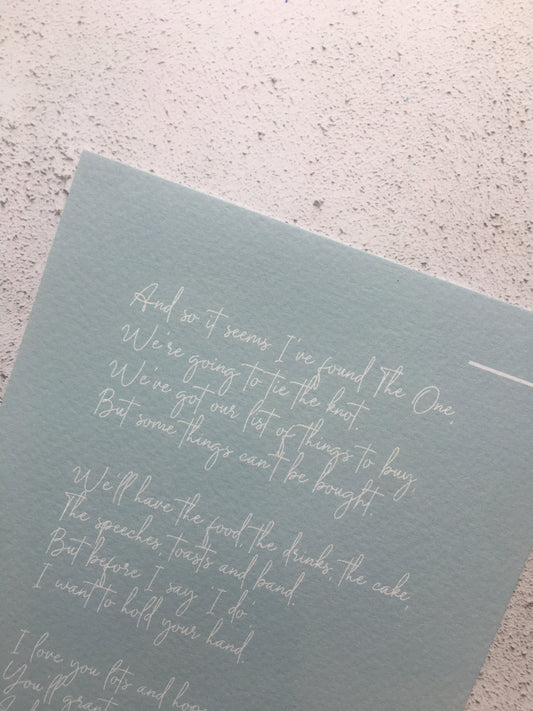 And so it seems I've found The One,
We're going to tie the knot.
We've got our list of things to buy,
But some things can't be bought.
We'll have the food, the drinks, the cake,
The speeches, toasts and band.
But before I say 'I do',
I want to hold your hand.
I love you lots and
You'll grant